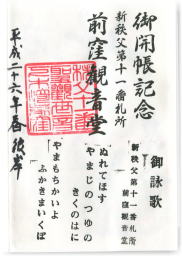 御開帳記念
新秩父第十一番札所
前窪観音堂
平成二十六年春彼岸
御詠歌
新秩父第十一番札所
前窪観音堂
ぬれてほす
やまじのつゆの
きくのはに
やまもちかいよ
ふかきまいくぼ